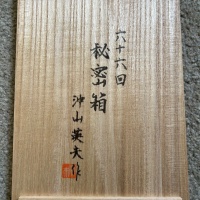 六十六回
秘密箱
沖山英夫作